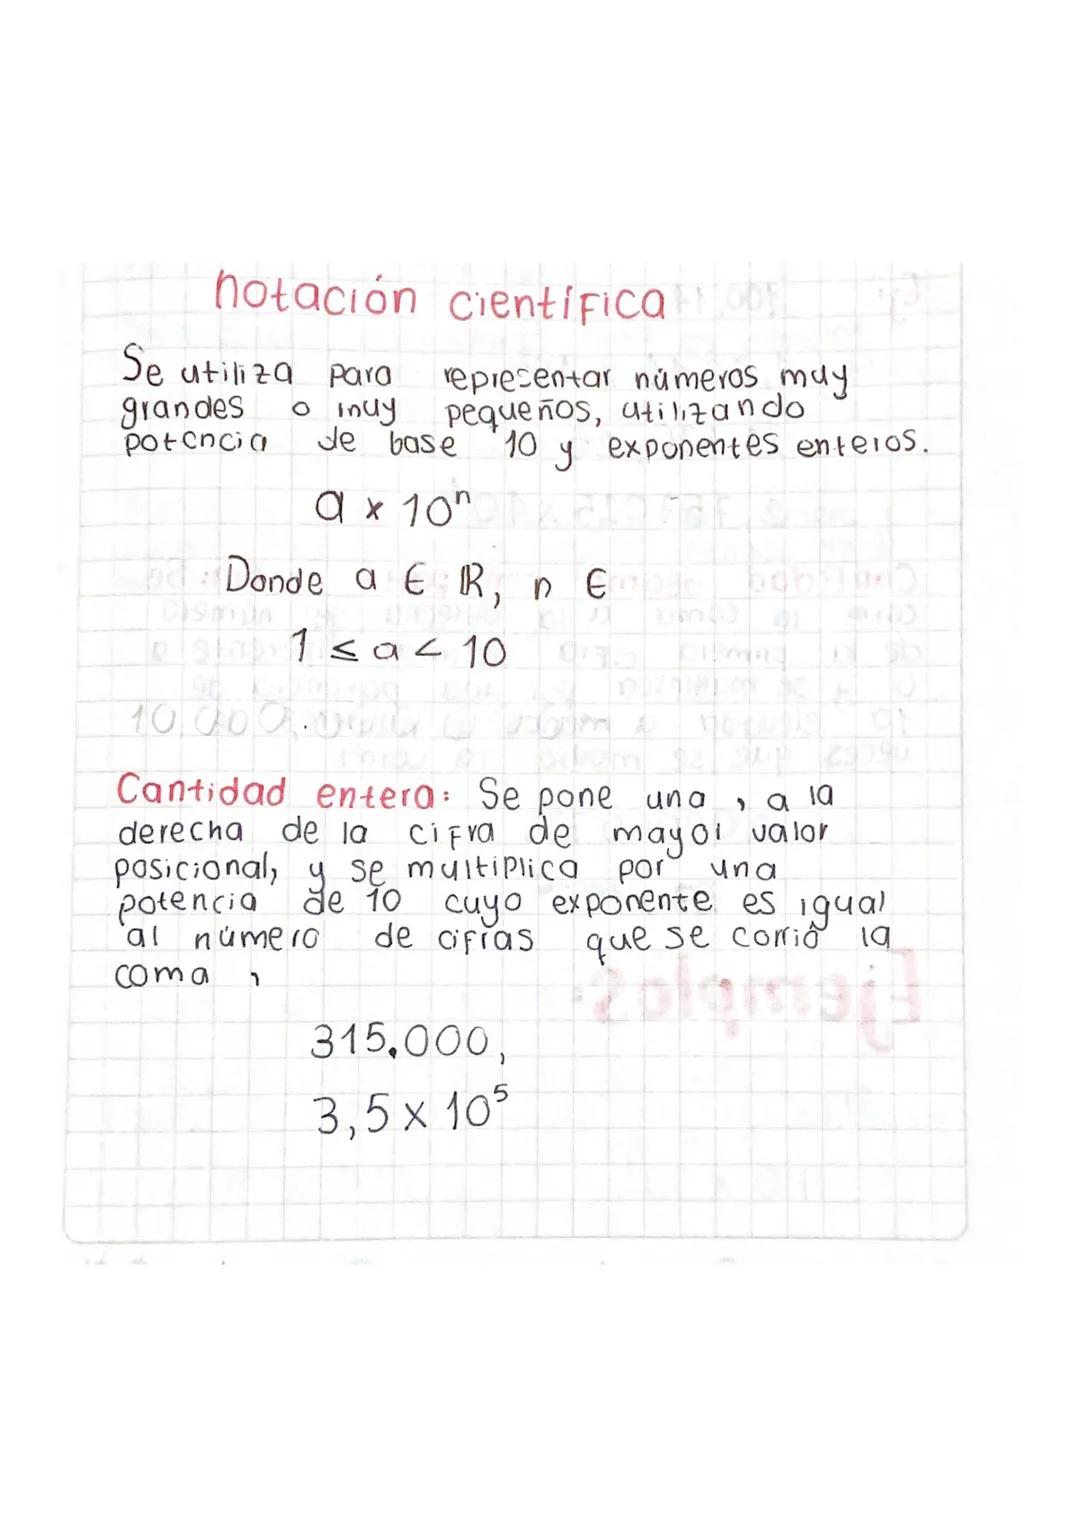 notación científica
Se utiliza para representar números muy
grandes o muy pequeños, utilizando
potencia de base 10 y exponentes enteros.
a x 10ⁿ
Donde a ∈ ℝ, n ∈
1 ≤ a < 10
10.000.
Cantidad entera: Se pone una , a la
derecha de la cifra de mayor valor
posicional, y se multiplica por una
potencia de 10 cuyo exponente es igual
al número de cifras que se corrió la
coma ,
315.000,
3,5 x 10⁵